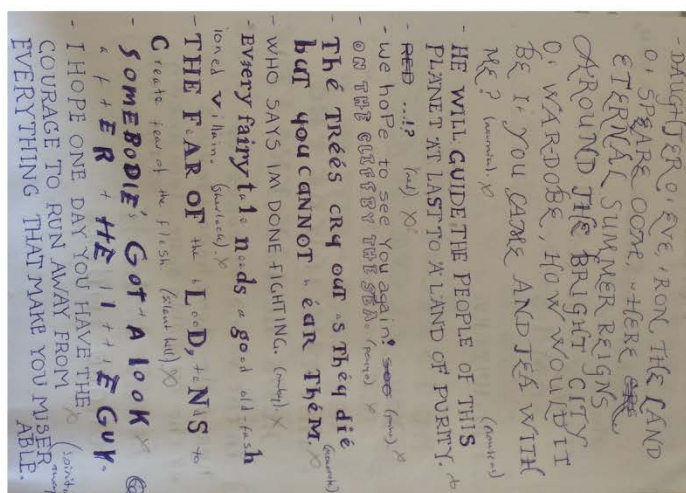 - DAUGHTER O' EVE, FROM THE LAND
O' SPEARE OOM, WHERE
ETERNAL SUMMER REIGNS
AROUND THE BRIGHT CITY
O' WAR-DOBE, HOW WOULD IT
BE IF YOU CAME AND TEA WITH
ME?
- HE WILL GUIDE THE PEOPLE OF THIS
PLANET AT LAST TO A LAND OF PURITY.
- RED ...!?
- WE hoPE to see You again!
ON THE CLIFF BY THE SEA.
- Thé TRéés CRY OUT as Théy dié
buT you CANNOT héAR ThéM.
- WHO SAYS IM DONE FIGHTING. (ruby)
- EVEry fairy tale needs a good old-fash
ioned villain. (sherlock)
- THE FEAR OF the bLooD, tends to
Create fear of the flesh (silent hill)
- SOMEBODIE'S GoT A look
aftER tHE littlE GUY.
- I HOPE ONE DAY YOU HAVE THE
COURAGE TO RUN AWAY FROM
EVERYTHING THAT MAKE YOU MISER
ABLE.